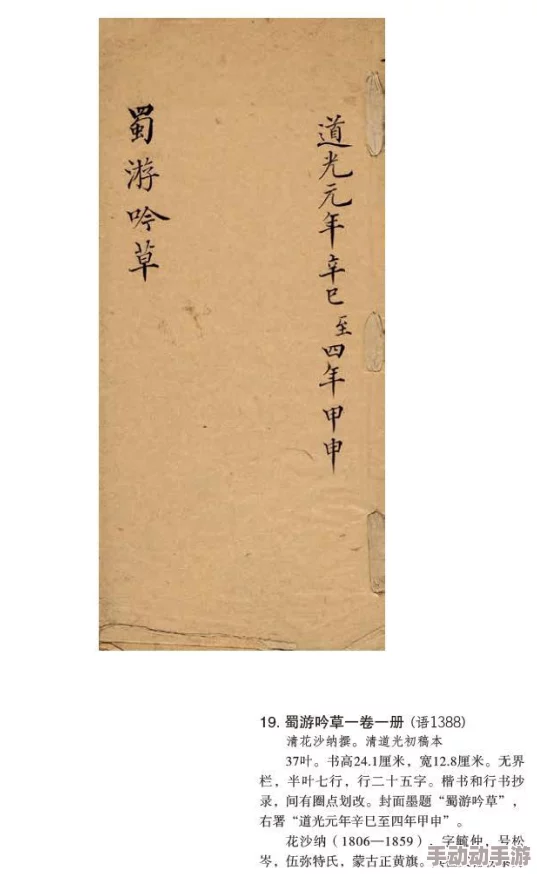 道光元年辛巳至四年甲申
蜀游吟草
19. 蜀游吟草一卷一册 (语1388)
清花沙纳撰。清道光初稿本
37叶。书高24.1厘米，宽12.8厘米。无界
栏，半叶七行，行二十五字。楷书和行书抄
录，间有圈点划改。封面墨题“蜀游吟草”，
右署“道光元年辛巳至四年甲申”。
花沙纳（1806—1859），字毓仲，号松
岑，伍弥特氏，蒙古正黄旗。
手动动手游